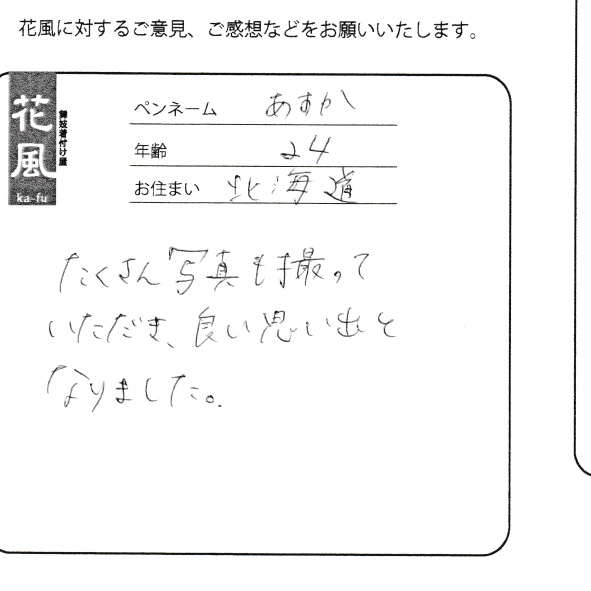 花風に対するご意見、ご感想などをお願いいたします。
花風
舞妓着付け屋
ka-fu
ペンネーム あすか
年齢 24
お住まい 北海道
たくさん写真も撮って
いただき、良い思い出と
なりました。